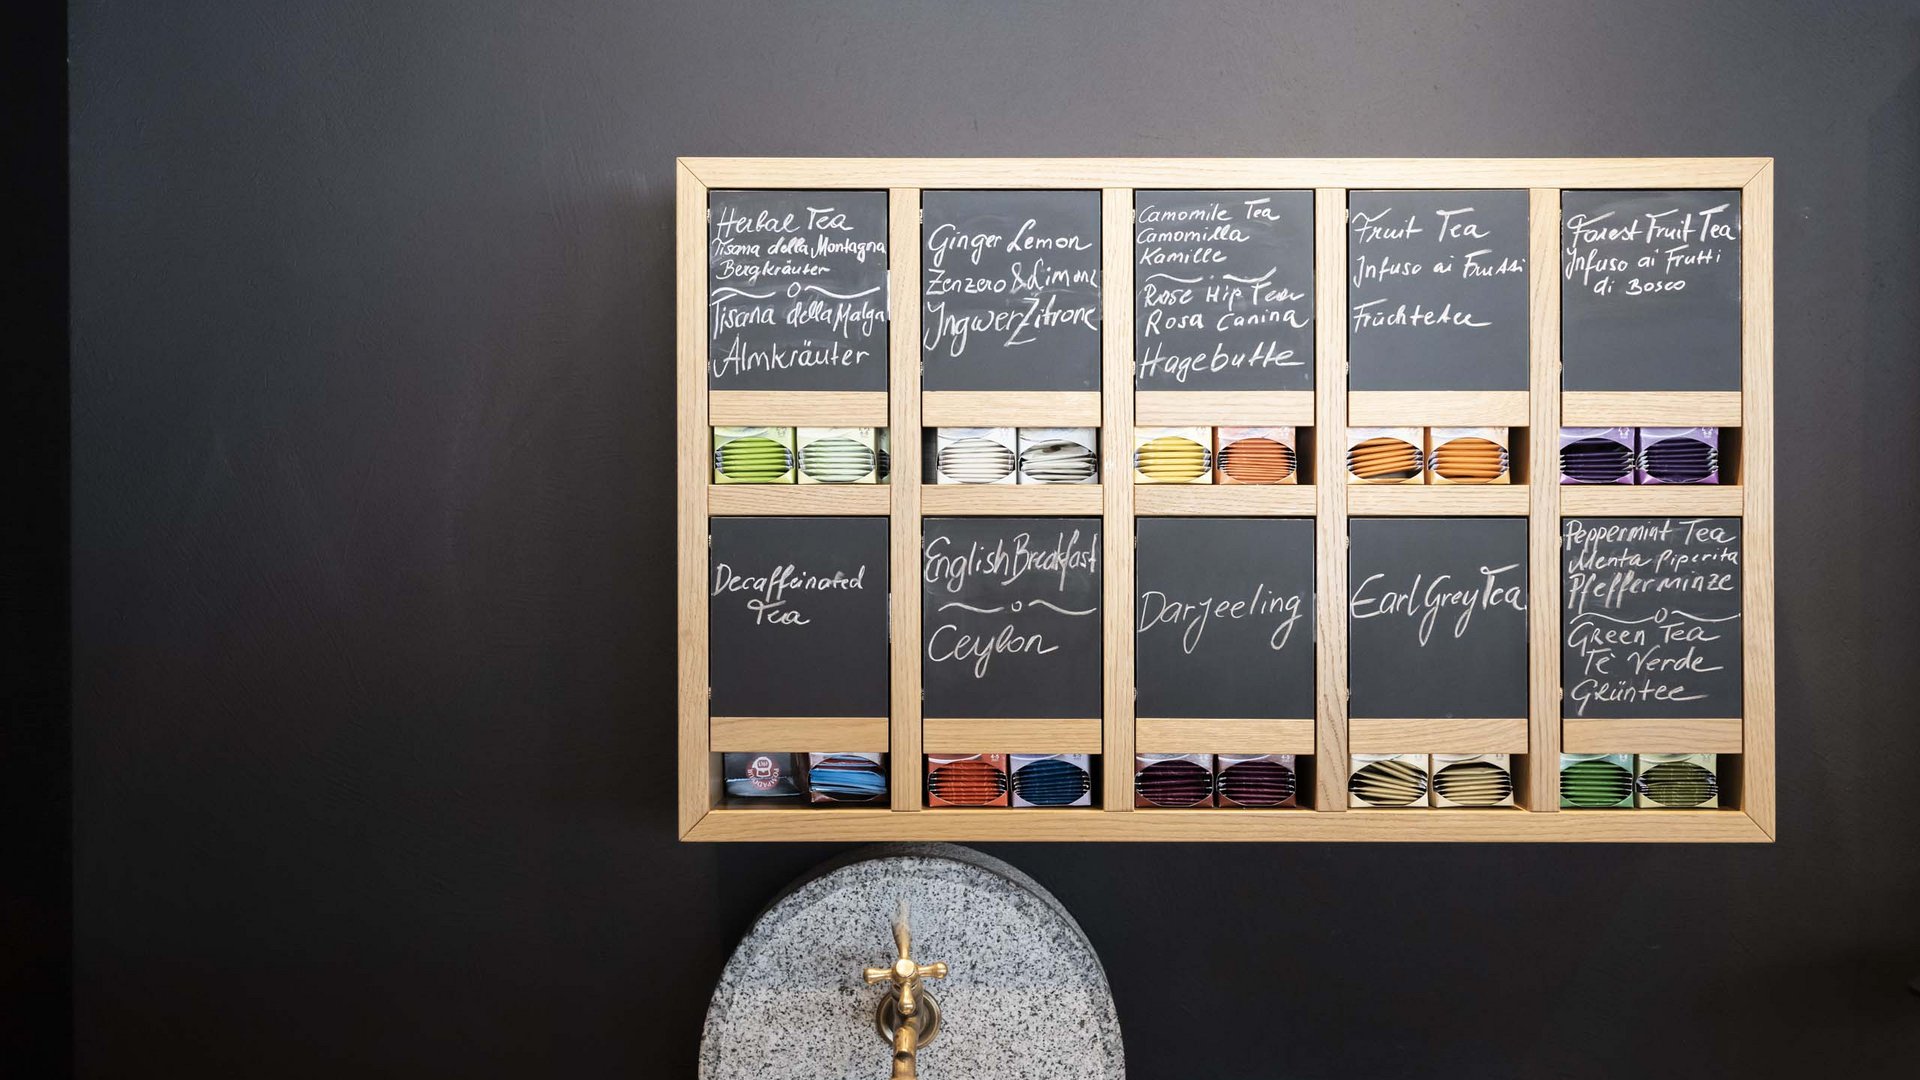 Herbal Tea
Tisana della Montagna
Bergkräuter
Tisana della Malga
Almkräuter
Ginger Lemon
Zenzero & Limone
Ingwer Zitrone
Camomile Tea
Camomilla
Kamille
Rose Hip Tea
Rosa Canina
Hagebutte
Fruit Tea
Infuso ai Frutti
Früchtetee
Forest Fruit Tea
Infuso ai Frutti
di Bosco
Decaffeinated
Tea
English Breakfast
Ceylon
Darjeeling
Earl Grey Tea
Peppermint Tea
Menta Piperita
Pfefferminze
Green Tea
Tè Verde
Grüntee